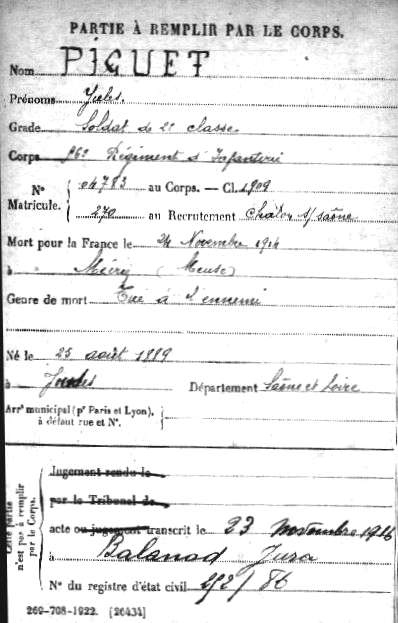 PARTIE À REMPLIR PAR LE CORPS.
Nom PIGUET
Prénoms Jules.
Grade Soldat de 2e classe.
Corps 56e Régiment d'Infanterie
N° 04783 au Corps. — Cl. 1909
Matricule. 270 au Recrutement Châlon s/ Saône
Mort pour la France le 24 Novembre 1914
à (Meuse)
Genre de mort Tué à l'ennemi
Né le 25 août 1889
à Joudes Département Saône et Loire
Arrt municipal (pr Paris et Lyon),
à défaut rue et N°.
Cette partie
n'est pas à remplir
par le Corps.
Jugement rendu le
par le Tribunal de
acte ou jugement transcrit le 23 novembre 1916
à Balanod Jura
N° du registre d'état civil 212/86
269-708-1922. [26434]